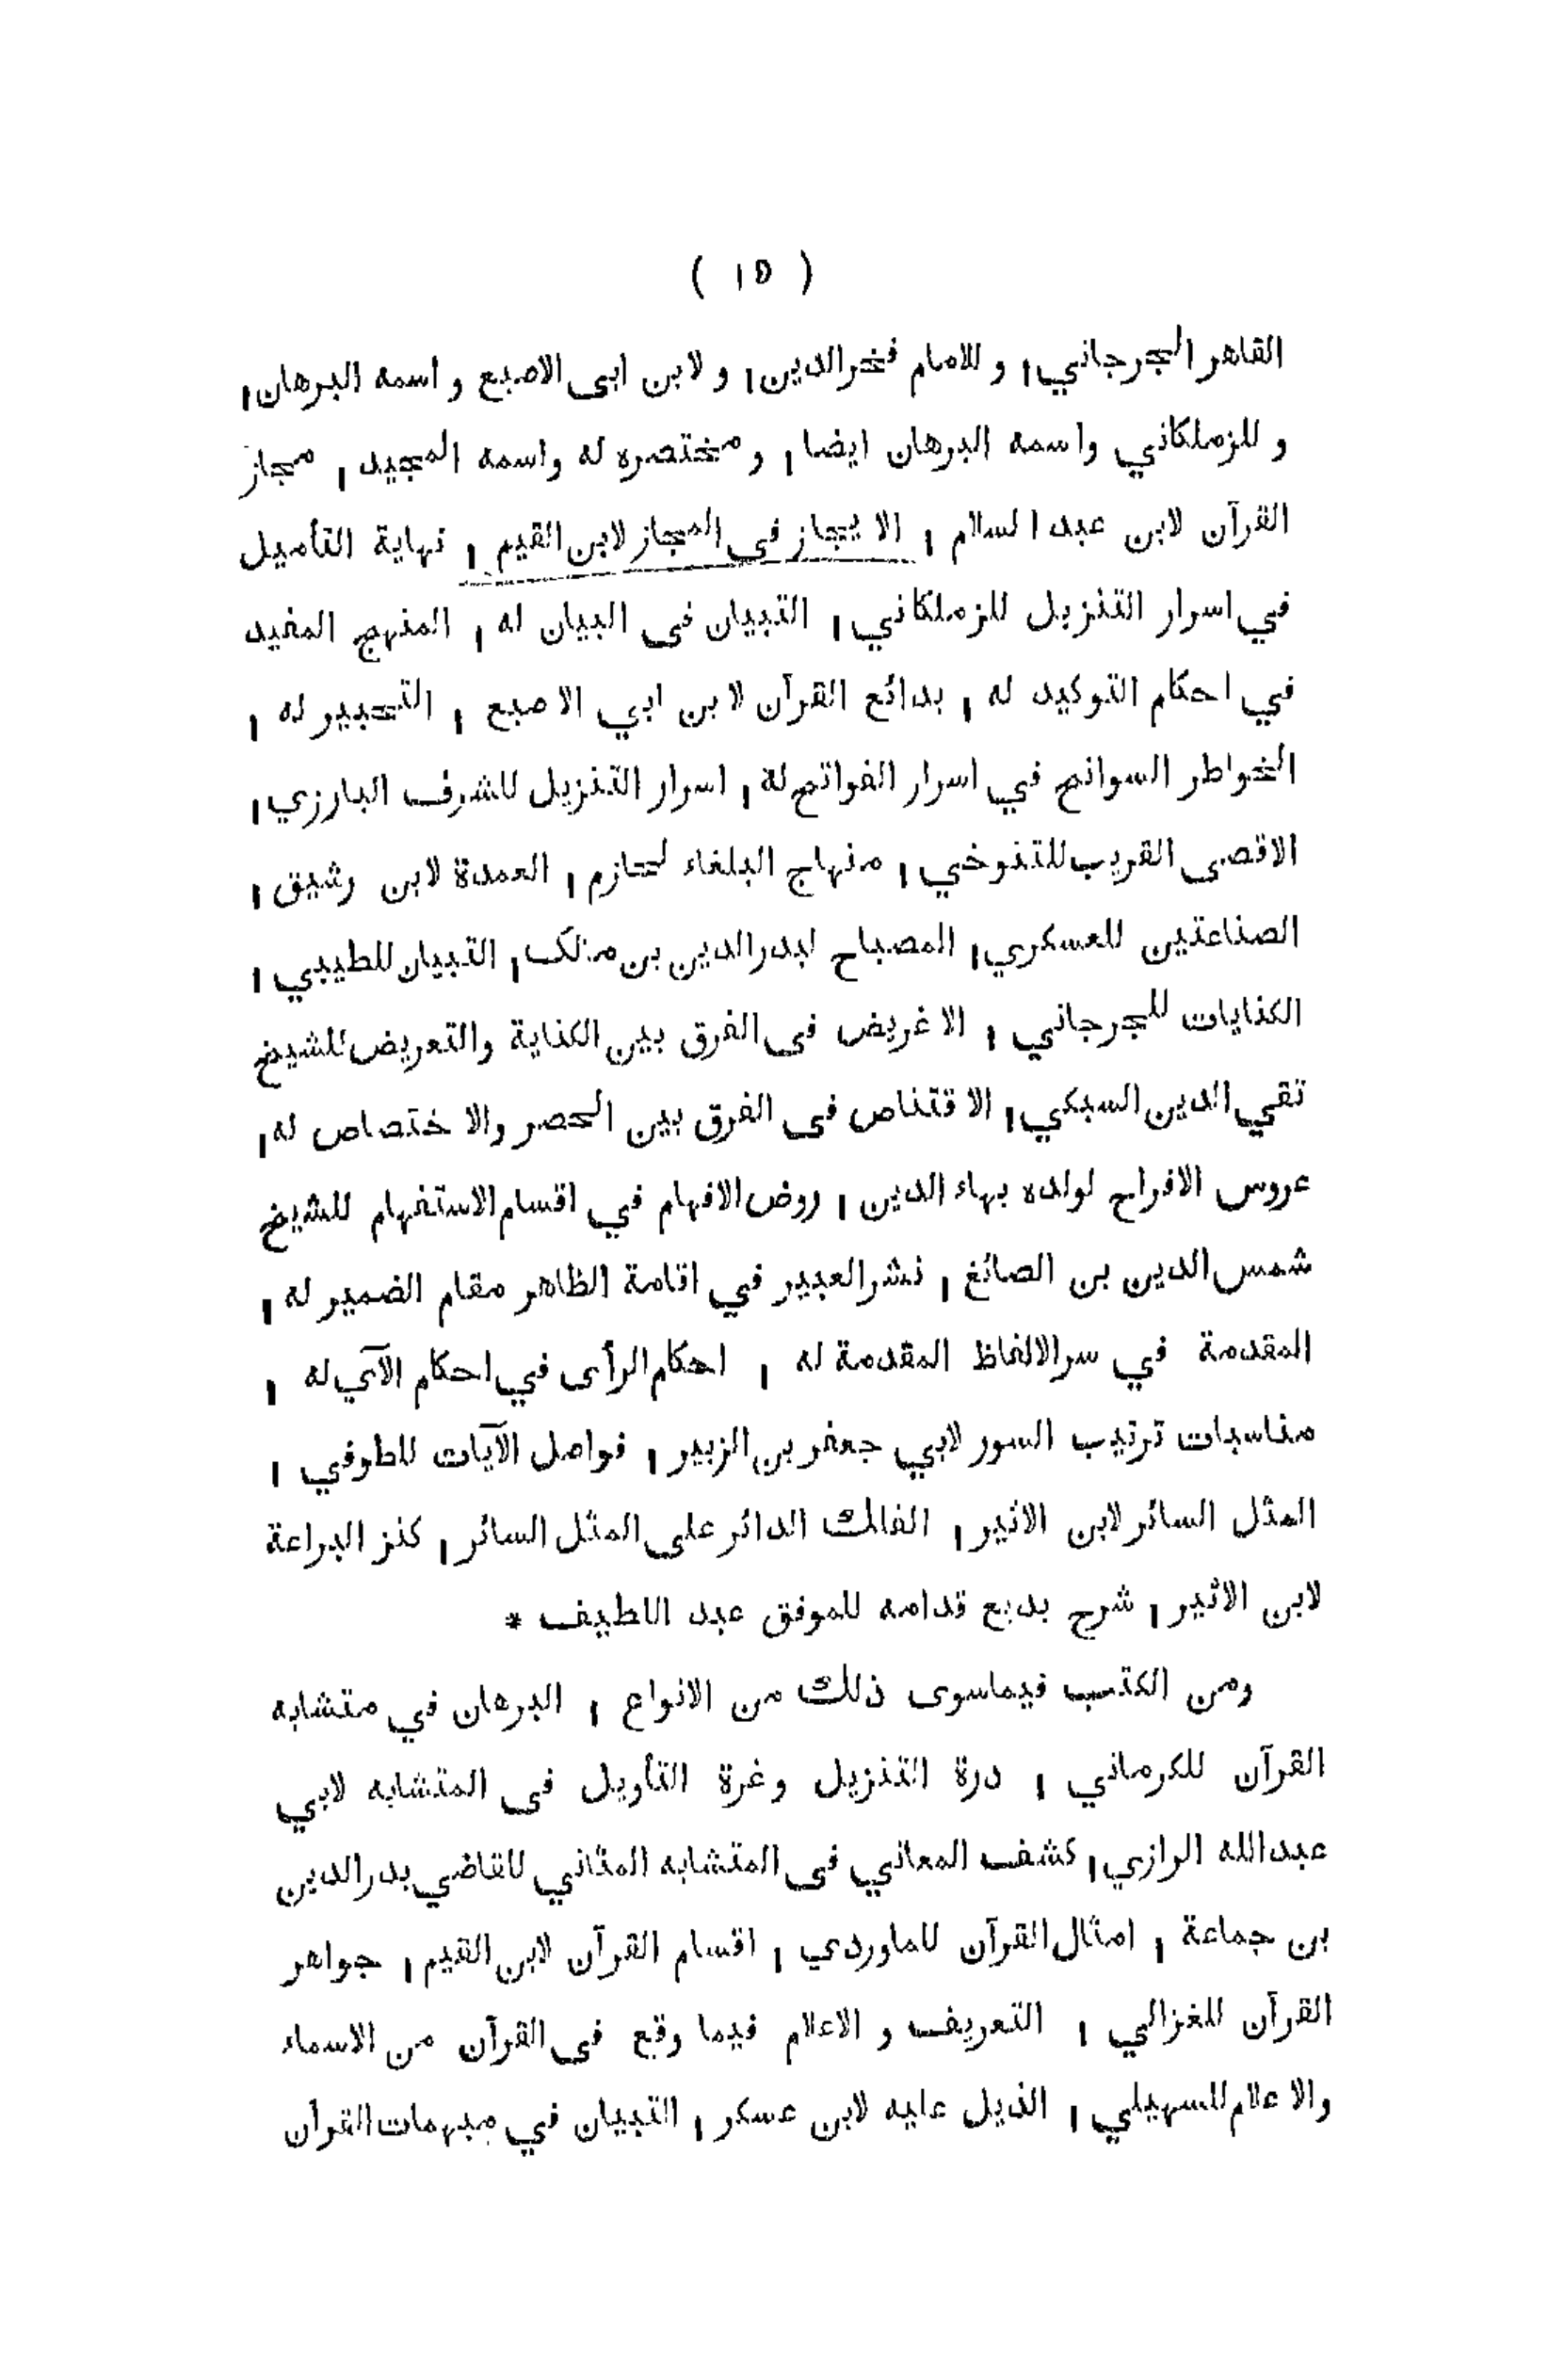 ( ١٥ )
القاهر الجرجاني ، و للامام فخرالدين ، و لابن ابى الاصبع و اسمه البرهان ،
و للزملكاني واسمه البرهان ايضا ، و مختصره له واسمه المجيد ، مجاز
القرآن لابن عبد السلام ، الايجاز فى المجاز لابن القيم ، نهاية التأميل
في اسرار التنزيل للزملكاني ، التبيان فى البيان له ، المنهج المفيد
في احكام التوكيد له ، بدائع القرآن لابن ابي الاصبع ، التحبير له ،
الخواطر السوانح في اسرار الفواتح لة ، اسرار التنزيل للشرف البارزي ،
الاقصى القريب للتنوخي ، منهاج البلغاء لحازم ، العمدة لابن رشيق ،
الصناعتين للعسكري ، المصباح لبدرالدين بن مالك ، التبيان للطيبي ،
الكنايات للجرجاني ، الاغريض فى الفرق بين الكناية والتعريض للشيخ
تقي الدين السبكي ، الاقتناص فى الفرق بين الحصر والاختصاص له ،
عروس الافراح لولده بهاء الدين ، روض الافهام في اقسام الاستفهام للشيخ
شمس الدين بن الصائغ ، نشر العبير في اقامة الظاهر مقام الضمير له ،
المقدمة في سر الالفاظ المقدمة له ، احكام الرأى في احكام الآي له ،
مناسبات ترتيب السور لابي جعفر بن الزبير ، فواصل الآيات للطوفي ،
المثل السائر لابن الاثير ، الفلك الدائر على المثل السائر ، كنز البراعة
لابن الاثير ، شرح بديع قدامه للموفق عبد اللطيف *
ومن الكتب فيماسوى ذلك من الانواع ، البرهان في متشابه
القرآن للكرماني ، درة التنزيل و غرة التأويل فى المتشابه لابي
عبدالله الرازي ، كشف المعاني فى المتشابه المثاني للقاضي بدرالدين
بن جماعة ، امثال القرآن للماوردي ، اقسام القرآن لابن القيم ، جواهر
القرآن للغزالي ، التعريف و الاعلام فيما وقع فى القرآن من الاسماء
والاعلام للسهيلي ، الذيل عليه لابن عسكر ، التبيان في مبهمات القرآن